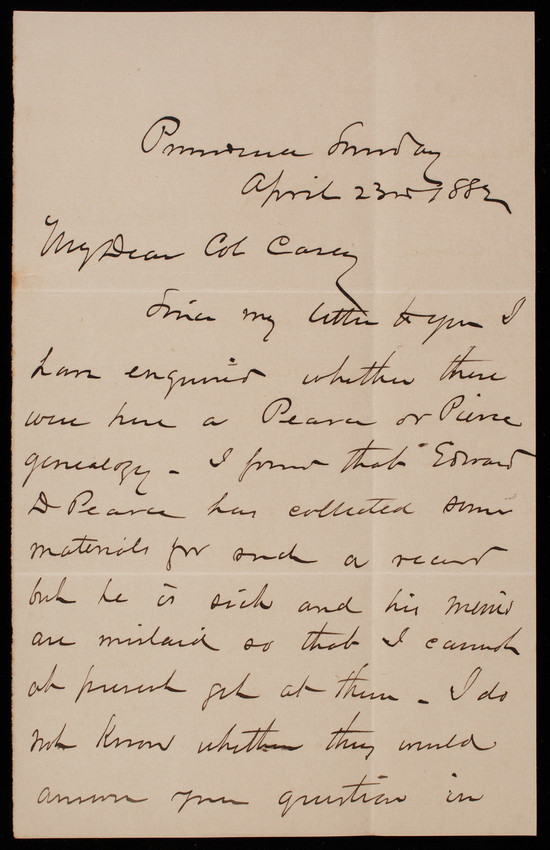 Providence Sunday
April 23rd 1882
My Dear Col Casey
Since my letter to you I
have enquired whether there
were here a Pearce or Pierce
genealogy - I found that Edward
D Pearce has collected some
materials for such a record
but he is sick and his
are mislaid so that I cannot
at present get at them - I do
not know whether they would
answer your question in